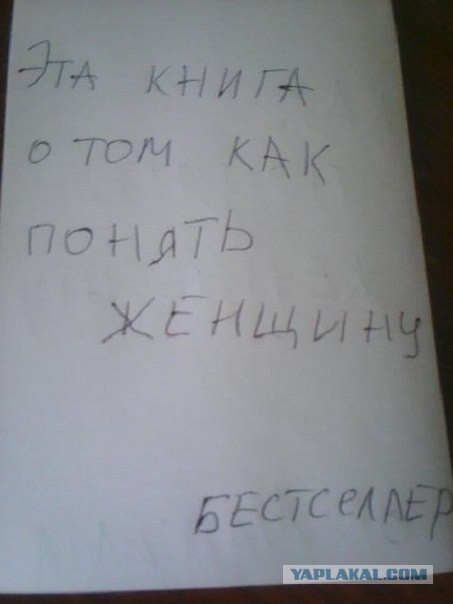 ЭТА КНИГА
О ТОМ КАК
ПОНЯТЬ
ЖЕНЩИНУ
БЕСТСЕЛЛЕР
YAPLAKAL.COM